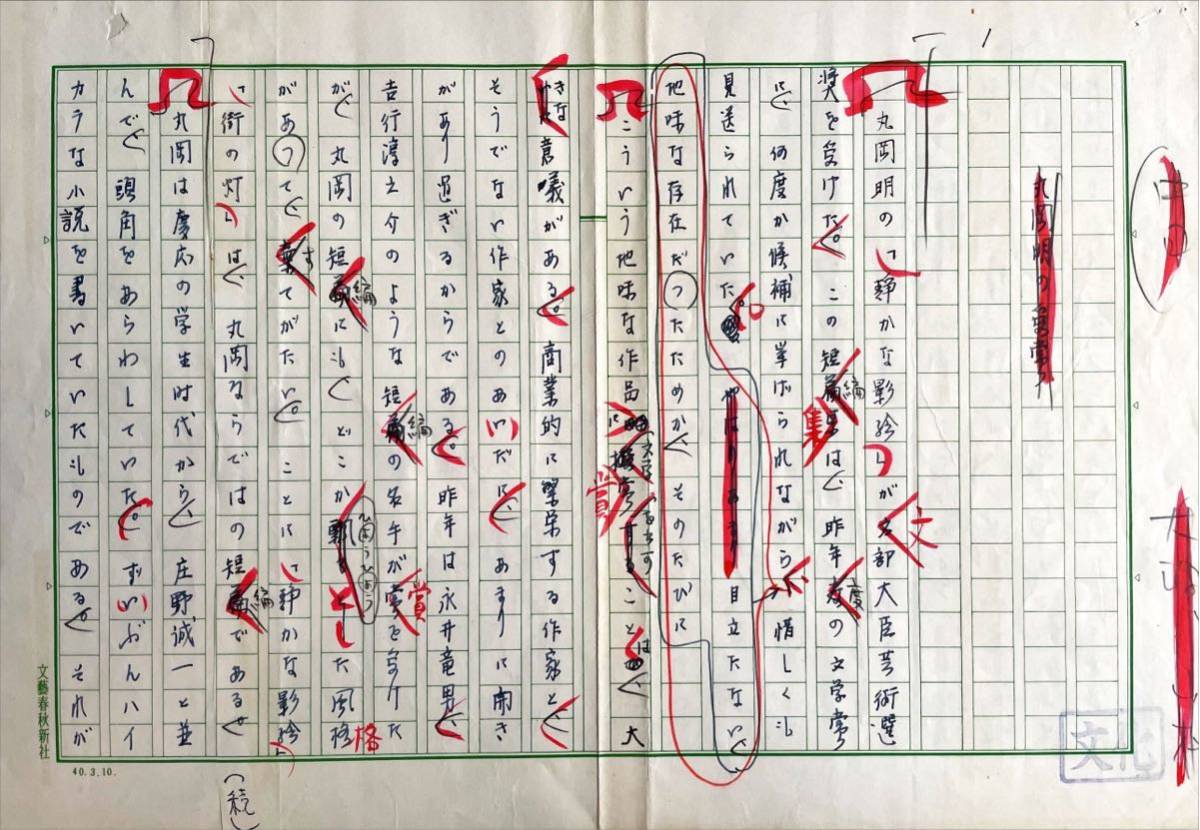 丸岡明の受賞
丸岡明の「静かな影絵」が文部大臣芸術選
奨を受けた。この短編集は、昨年度の文学賞
に、何度か候補に挙げられながら、惜しくも
見送られていた。やはりあまり目立たない、
地味な存在だったためか、そのたびに
こういう地味な作品に授賞することは、大
きな意義がある。商業的に繁栄する作家と、
そうでない作家とのあいだに、あまりに開き
があり過ぎるからである。昨年は永井竜男、
吉行淳之介のような短編の名手が賞を受けた
が、丸岡の短編にも、どこか飄々とした風格
ひょうひょう
があって、棄てがたい。ことに「静かな影絵」
「街の灯」は、丸岡ならではの短編である。
丸岡は慶応の学生時代から、庄野誠一と並
んで、頭角をあらわしていた。ずいぶんハイ
カラな小説を書いていたものである。それが
(続)
文藝春秋新社
40.3.10.
文化